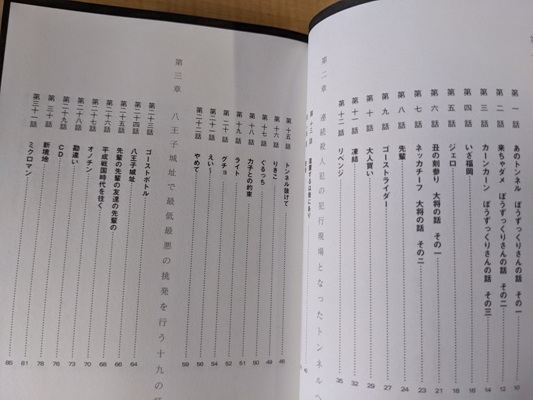 第一話 あのトンネル ぼうずっくりさんの話 その一
第二話 来ちゃダメ ぼうずっくりさんの話 その二 12
第三話 カーンカーン ぼうずっくりさんの話 その三 14
第四話 いざ福岡 16
第五話 ジェロ 18
第六話 丑の刻参り 大将の話 その一 21
第七話 ネッカチーフ 大将の話 その二 23
第八話 先輩 24
第九話 ゴーストライダー 27
第十話 大人買い 29
第十一話 凍結 32
第十二話 リベンジ 35
第二章 連続殺人犯の犯行現場となったトンネルへ
第十三話
第十五話 トンネル抜けて 46
第十六話 りきこ 48
第十七話 ぐるっち 50
第十八話 力子との約束 51
第十九話 ライト 52
第二十話 グチョ 54
第二十一話 えい〜 56
第二十二話 やめて 58
第三章 八王子城址で最低最悪の挑発を行う十九の
第二十三話 ゴーストボトル 64
第二十四話 八王子城址 66
第二十五話 先輩の先輩の友達の先輩の 68
第二十六話 平成戦国時代を往く 70
第二十七話 オノチン 73
第二十八話 勘違い 76
第二十九話 CD 78
第三十話 新境地 81
第三十一話 ミクロマン